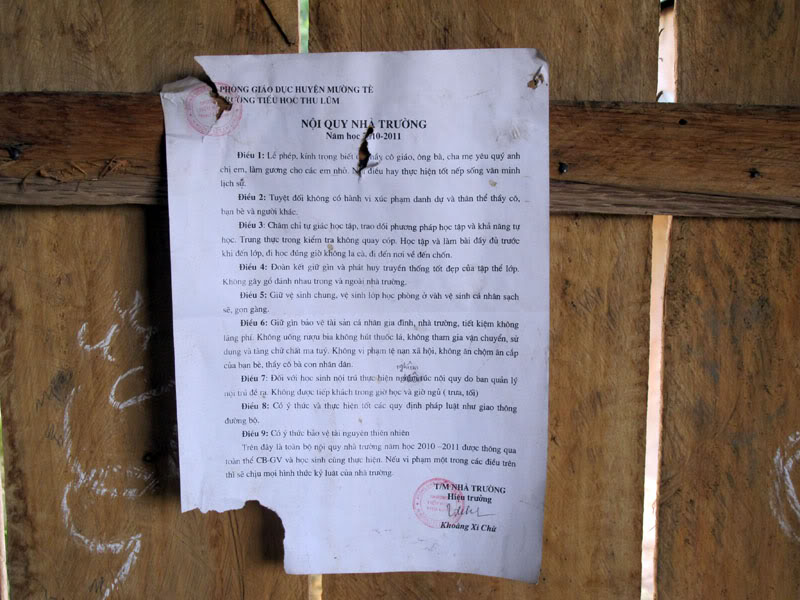 PHÒNG GIÁO DỤC HUYỆN MƯỜNG TÈ
TRƯỜNG TIỂU HỌC THU LŨM
NỘI QUY NHÀ TRƯỜNG
Năm học 2010-2011
Điều 1: Lễ phép, kính trọng biết thầy cô giáo, ông bà, cha mẹ yêu quý anh
chị em, làm gương cho các em nhỏ. điều hay thực hiện tốt nếp sống văn minh
lịch sự.
Điều 2: Tuyệt đối không có hành vi xúc phạm danh dự và thân thể thầy cô,
bạn bè và người khác.
Điều 3: Chăm chỉ tự giác học tập, trao dồi phương pháp học tập và khả năng tự
học. Trung thực trong kiểm tra không quay cóp. Học tập và làm bài đầy đủ trước
khi đến lớp, đi học đúng giờ không la cà, đi đến nơi về đến chốn.
Điều 4: Đoàn kết giữ gìn và phát huy truyền thống tốt đẹp của tập thể lớp.
Không gây gổ đánh nhau trong và ngoài nhà trường.
Điều 5: Giữ vệ sinh chung, vệ sinh lớp học phòng ở vàh vệ sinh cá nhân sạch
sẽ, gọn gàng.
Điều 6: Giữ gìn bảo vệ tài sản cá nhân gia đình, nhà trường, tiết kiệm không
lãng phí. Không uống rượu bia không hút thuốc lá, không tham gia vận chuyển, sử
dụng và tàng chữ chất ma tuý. Không vi phạm tệ nạn xã hội, không ăn chộm ăn cắp
của bạn bè, thầy cô bà con nhân dân.
Điều 7: Đối với học sinh nội trú thực hiện nghiêm túc nội quy do ban quản lý
nội trú đề ra. Không được tiếp khách trong giờ học và giờ ngủ ( trưa, tối)
Điều 8: Có ý thức và thực hiện tốt các quy định pháp luật như giao thông
đường bộ.
Điều 9: Có ý thức bảo vệ tài nguyên thiên nhiên
Trên đây là toàn bộ nội quy nhà trường năm học 2010 –2011 được thông qua
toàn thể CB-GV và học sinh cùng thực hiện. Nếu vi phạm một trong các điều trên
thì sẽ chịu mọi hình thức kỷ luật của nhà trường.
T/M NHÀ TRƯỜNG
Hiệu trưởng
Khoàng Xì Chừ